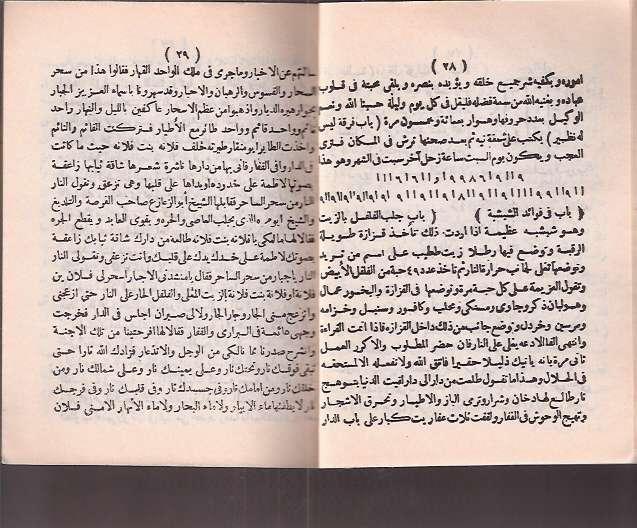 ( ٢٨ )
اموره ويكفيه شر جميع خلقه ويؤيده بنصره ويلقى محبته فى قلوب
عباده ويغنيه الله من سعة فضله فليقل فى كل يوم وليلة حسبنا الله ونعم
الوكيل بعدد حروفها وهو اربعمائة وخمسون مرة ( باب فرقة ليس
له نظير ) يكتب على شقفة نيه ثم بعد صحنها ترش فى المكان فترى
العجب ويكون يوم السبت ساعة زحل آخر سبت فى الشهر وهو هذا
( باب فى فوائد الشبشبة ) ( باب جلب الفلفل بالزيت
وهو شبشبه عظيمة اذا اردت ذلك تأخذ قزازة طويلة
الرقبة وتوضع فيها رطلا زيت طيب على اسم من تريد
وتوضعها تغلى لجانب حرارة النار ثم تأخذ عدد ٩ حبة من الفلفل الأبيض
وتقول العزيمة على كل حبة مرة وتوضعها فى القزازة والبخور عمال
وهو لبان ذكر وجاوى ومستكى ومحلب وكافور وسنبل وخزامه
ومرسين وخردل وتوضع جانب من ذلك داخل القزازه فاذا تمت القراءة
وانتهى الفال ادعه يغلى على النار فان حضر المطلوب والا كرر العمل
ثانى مرة بانه يأتيك ذليلا حقيرا فاتق الله ولا تفعله الا لمستحقه
فى الحلال وهذا ما تقول طلعت من دار الى دار لقيت الدنيا بتوهج
نار طالع لها دخان وشرار وترى الباز والاطيار وتحرق الاشجار
وتهيج الوحوش فى القفار ولقيت ثلاث عفاريت كبار على باب الدار
( ٢٩ )
سألتهم عن الاخبار وما جرى فى ملك الواحد القهار فقالوا هذا من سحر
السحار والقسوس والرهبان والاحبار وقد سهرونا باسماء العزيز الجبار
الدار واذهبوا من عظم الاسحار عاكفين بالليل والنهار واحد
نائم وواحد قائم وواحد طائر مع الأطيار فتركت القائم والنائم
واخذت الطاير ابو منقار طويل خلف فلانه بنت فلانه حيث ما كانت
فى الدار او فى القفار فأتى بها من دارها ناشرة شعرها شاقة ثيابها زاعقة
بصوتها لاطمة على خدودها ويداها على قلبها وهى تزعق وتقول النار
النار من سحر الساحر فقابلها الشيخ أبو الزعازع صاحب الفرصة والتلديغ
والشيخ ابو مره الذى يجلب العاصى والحره ويقوى العابد ويقطع الجره
فقال لها مالكى يا فلانه بنت فلانه طالعه من دارك شاقة ثيابك زاعقة
بصوتك لاطمة على خدك يدك على قلبك وانت تزعقى وتقولى النار
النار يا جبار من سحر الساحر فقال يا منشدنى الاجبار اسحرلى فلان بن
فلانة او فلانة بنت فلانة بالزيت المغلى والفلفل الحار على النار حتى انزعجنى
وانزعج منى الجار وجار الجار ولالى صبران اجلس فى الدار فخرجت
وجهى هائمة فى البرارى والقفار فقالا لها افرحتينا من تلك الاجنة
وانشرح صدرنا مما نالكى من الوجل والانذعار فزادك الله نارا حتى
تبقى فوقك نار وتحتك نار وعلى يمينك نار وعلى شمالك نار ومن
خلفك نار ومن امامك نار وفى جسدك نار وفى قلبك نار وفى فرجك
نار لا يطفئها ماء الآبار ولا ماء البحار ولا ماء الأنهار الا منى فلان